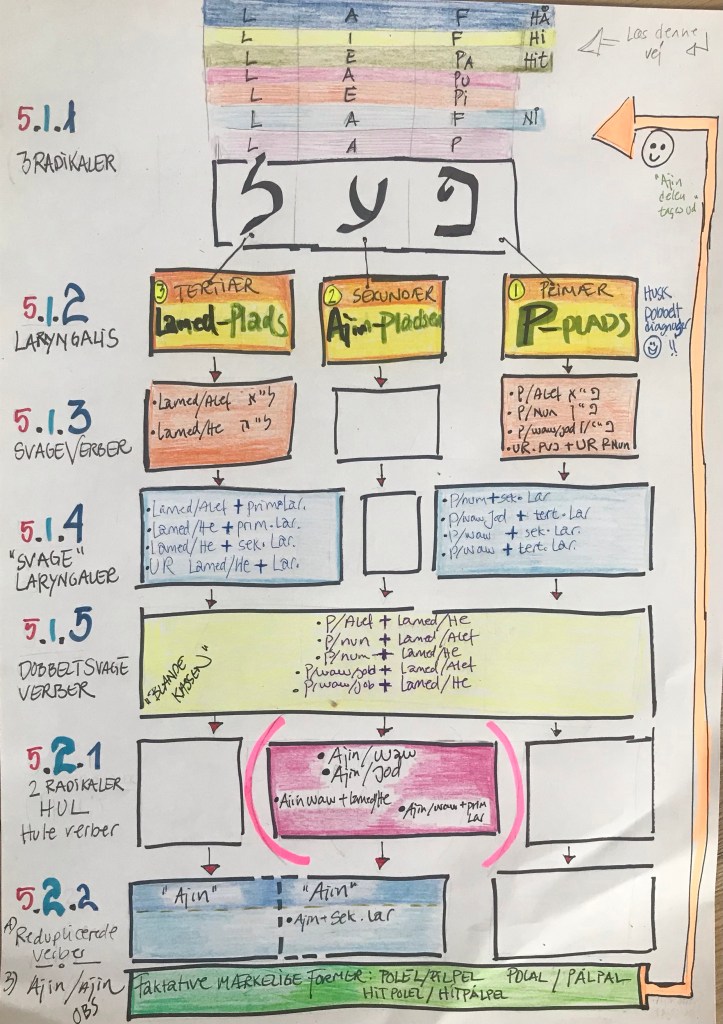 L A F HÅ
L I F Hi
L E PA Hit
L A PU
L E Pi
L A F Ni
L A P
Læs denne vej
5.1.1
3 RADIKALER
ל ע פ
"Ajin
delen
5.1.2
LARYNGALIS
③ TERTIÆR
Lamed-Plads
② SEKUNDÆR
Ajin-Pladsen
① PRIMÆR
P-PLADS
HUSK
Dobbelt
diagnoser
!!
5.1.3
SVAGE VERBER
• Lamed/Alef ל"א
• Lamed/He ל"ה
• P/Alef פ"א
• P/Nun פ"ן
• P/waw/jod פ"י/ו
• UR. P/J + UR P.Nun
5.1.4
"SVAGE"
LARYNGALER
• Lamed/Alef + prim. Lar.
• Lamed/He + prim. Lar.
• Lamed/He + sek. Lar.
• UR Lamed/He + Lar.
• P/nun + sek. Lar
• P/waw Jod + tert. Lar
• P/waw + sek. Lar.
• P/waw + tert. Lar.
5.1.5
DOBBELTSVAGE
VERBER
"BLANDE
KASSEN"
• P/Alef + Lamed/He
• P/nun + Lamed/Alef
• P/nun + Lamed/He
• P/waw/jod + Lamed/Alef
• P/waw/job + Lamed/He
5.2.1
2 RADIKALER
HUL
Hule verber
• Ajin/waw
• Ajin/Jod
• Ajin waw + Lamed/He
• Ajin/waw + prim
Lar
5.2.2
Reduplicerede
verber
3) Ajin/Ajin
OBS
"Ajin" "Ajin"
• Ajin + sek. Lar
Faktative MÆRKELIGE FORMER: POLEL/PILPEL POLAL / PÁLPAL
HITPOLEL/HITPÁLPEL